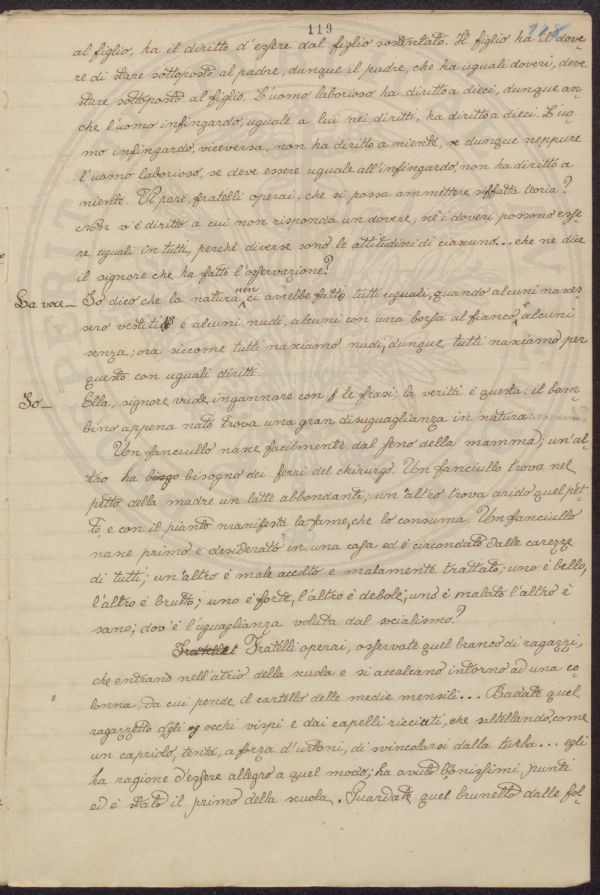 119
118
al figlio, ha il diritto d'essere dal figlio sostentato. Il figlio ha il dove-
re di stare sottoposto al padre, dunque il padre, che ha uguali doveri, deve
stare sottoposto al figlio. L'uomo laborioso ha diritto a dieci, dunque an-
che l'uomo infingardo, uguale a lui nei diritti, ha diritto a dieci. L'uo-
mo infingardo, viceversa, non ha diritto a niente, se dunque neppure
l'uomo laborioso, se deve essere uguale all'infingardo, non ha diritto a
niente. Vi pare, fratelli operai, che si possa ammettere siffatta teoria?
Non v'è diritto a cui non risponda un dovere, nè i doveri possono esse-
re uguali in tutti, perchè diverse sono le attitudini di ciascuno... che ne dice
il signore che ha fatto l'osservazione?
La voce_ Io dico che la natura non ci avrebbe fatto tutti uguali, quando alcuni nases-
sero vestiti e alcuni nudi, alcuni con una borsa al fianco e alcuni
senza; ora siccome tutti nasciamo nudi, dunque tutti nasciamo per
questo con uguali diritti.
Io_ Ella, signore, vuole ingannare con le frasi; la verità è questa: il bam-
bino appena nato trova una gran disuguaglianza in natura.
Un fanciullo nasce facilmente dal seno della mamma; un al-
tro ha bisogno dei ferri del chirurgo. Un fanciullo trova nel
petto della madre un latte abbondante; un altro trova arido quel pet-
to e con il pianto manifesta la fame, che lo consuma. Un fanciullo
nasce primo e desiderato in una casa ed è circondato dalle carezze
di tutti; un altro è male accolto e malamente trattato; uno è bello,
l'altro è brutto; uno è forte, l'altro è debole; uno è malato l'altro è
sano; dov'è l'uguaglianza voluta dal socialismo?
Fratelli operai, osservate quel branco di ragazzi,
che entrano nell'atrio della scuola e si accalcano intorno ad una co-
lonna, da cui pende il cartello delle medie mensili... Badate quel
ragazzetto dagli occhi vispi e dai capelli ricciuti, che saltellando, come
un capriolo, tenta, a forza d'urtoni, di svincolarsi dalla turba... egli
ha ragione d'essere allegro a quel modo; ha avuto bonissimi punti
ed è stato il primo della scuola. Guardate quel brunetto dalle fol-